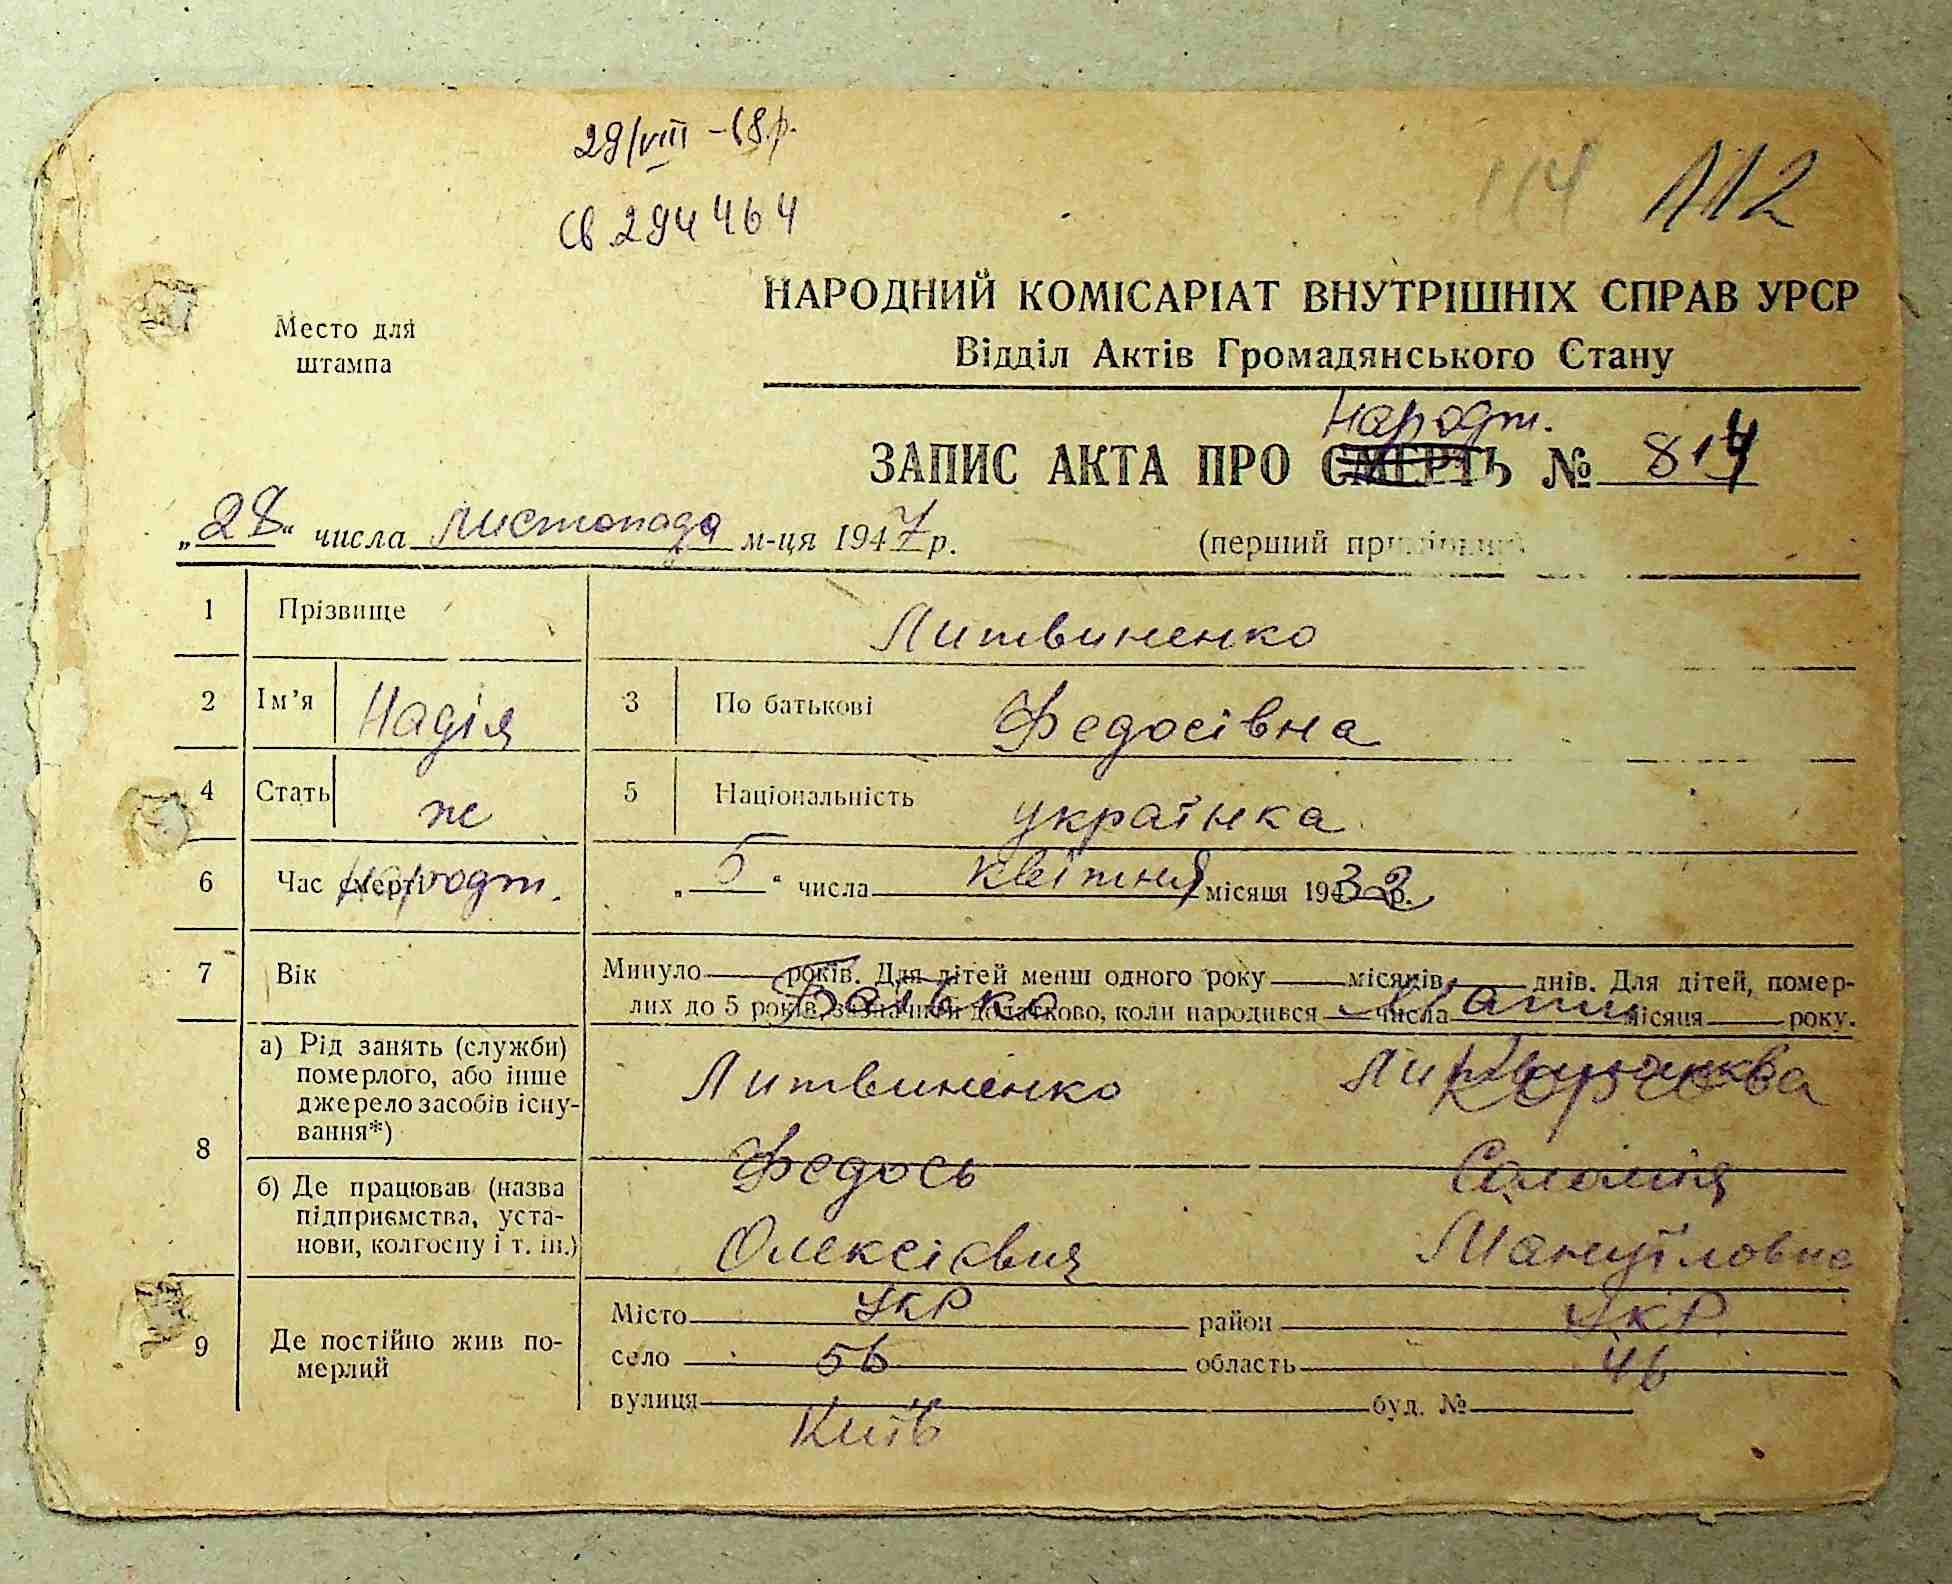 29/VIII – 68 р.
114 112
св 294464
НАРОДНИЙ КОМІСАРІАТ ВНУТРІШНІХ СПРАВ УРСР
Место для
штампа
Відділ Актів Громадянського Стану
Народж.
ЗАПИС АКТА ПРО СМЕРТЬ № 814
„28“ числа листопада м-ця 1947 р. (перший примірник
1 Прізвище Литвиненко
2 Ім'я Надія 3 По батькові Федосівна
4 Стать ж 5 Національність українка
6 Час смерті народж. „5“ числа квітня місяця 1933 р.
7 Вік Минуло років. Для дітей менш одного року місяців днів. Для дітей, помер-
лих до 5 років, зазначити додатково, коли народився числа місяця року.
Батько Мати
8 а) Рід занять (служби)
померлого, або інше
джерело засобів існу-
вання*)
Литвиненко Литвиненко
Корчова
Федось Соломія
б) Де працював (назва
підприємства, уста-
нови, колгоспу і т. ін.)
Олексієвич Мануїловна
9 Де постійно жив по-
мерлий
Місто УКР район УКР.
село 56 область 46
вулиця буд. №
Київ